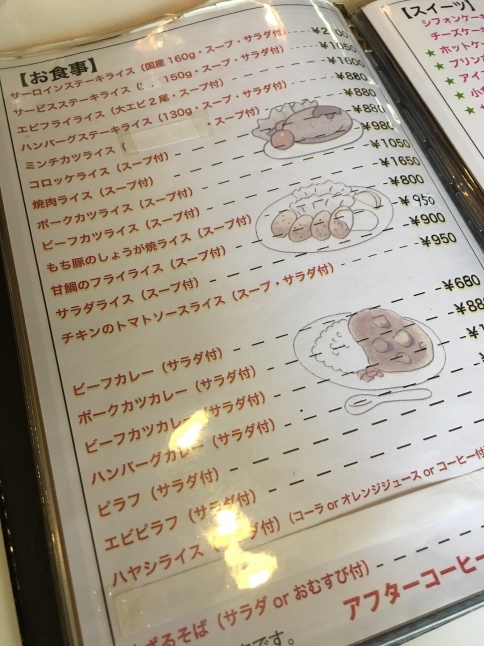 【お食事】
サーロインステーキライス（国産160g・スープ・サラダ付）
サービスステーキライス（150g・スープ・サラダ付） ¥1650
エビフライライス（大エビ2尾・スープ付） ¥1600
ハンバーグステーキライス（130g・スープ・サラダ付） ¥880
ミンチカツライス スープ付） ¥880
コロッケライス（スープ付） ¥880
焼肉ライス（スープ付） ¥980
ポークカツライス（スープ付） ¥1050
ビーフカツライス（スープ付） ¥1650
もち豚のしょうが焼ライス（スープ付） ¥800
甘鯛のフライライス（スープ付） ¥950
サラダライス（スープ付） ¥900
チキンのトマトソースライス（スープ・サラダ付） ¥950
ビーフカレー（サラダ付） ¥680
ポークカツカレー（サラダ付）
ビーフカツカレー（サラダ付）
ハンバーグカレー（サラダ付）
ピラフ（サラダ付）
エビピラフ（サラダ付）
ハヤシライス（サラダ付）（コーラ or オレンジジュース or コーヒー付
ざるそば（サラダ or おむすび付）
アフターコーヒー
です。
【スイーツ】
シフォンケーキ
チーズケーキ
★ ホットケー
★ プリン
★ アイ
★ 小
★